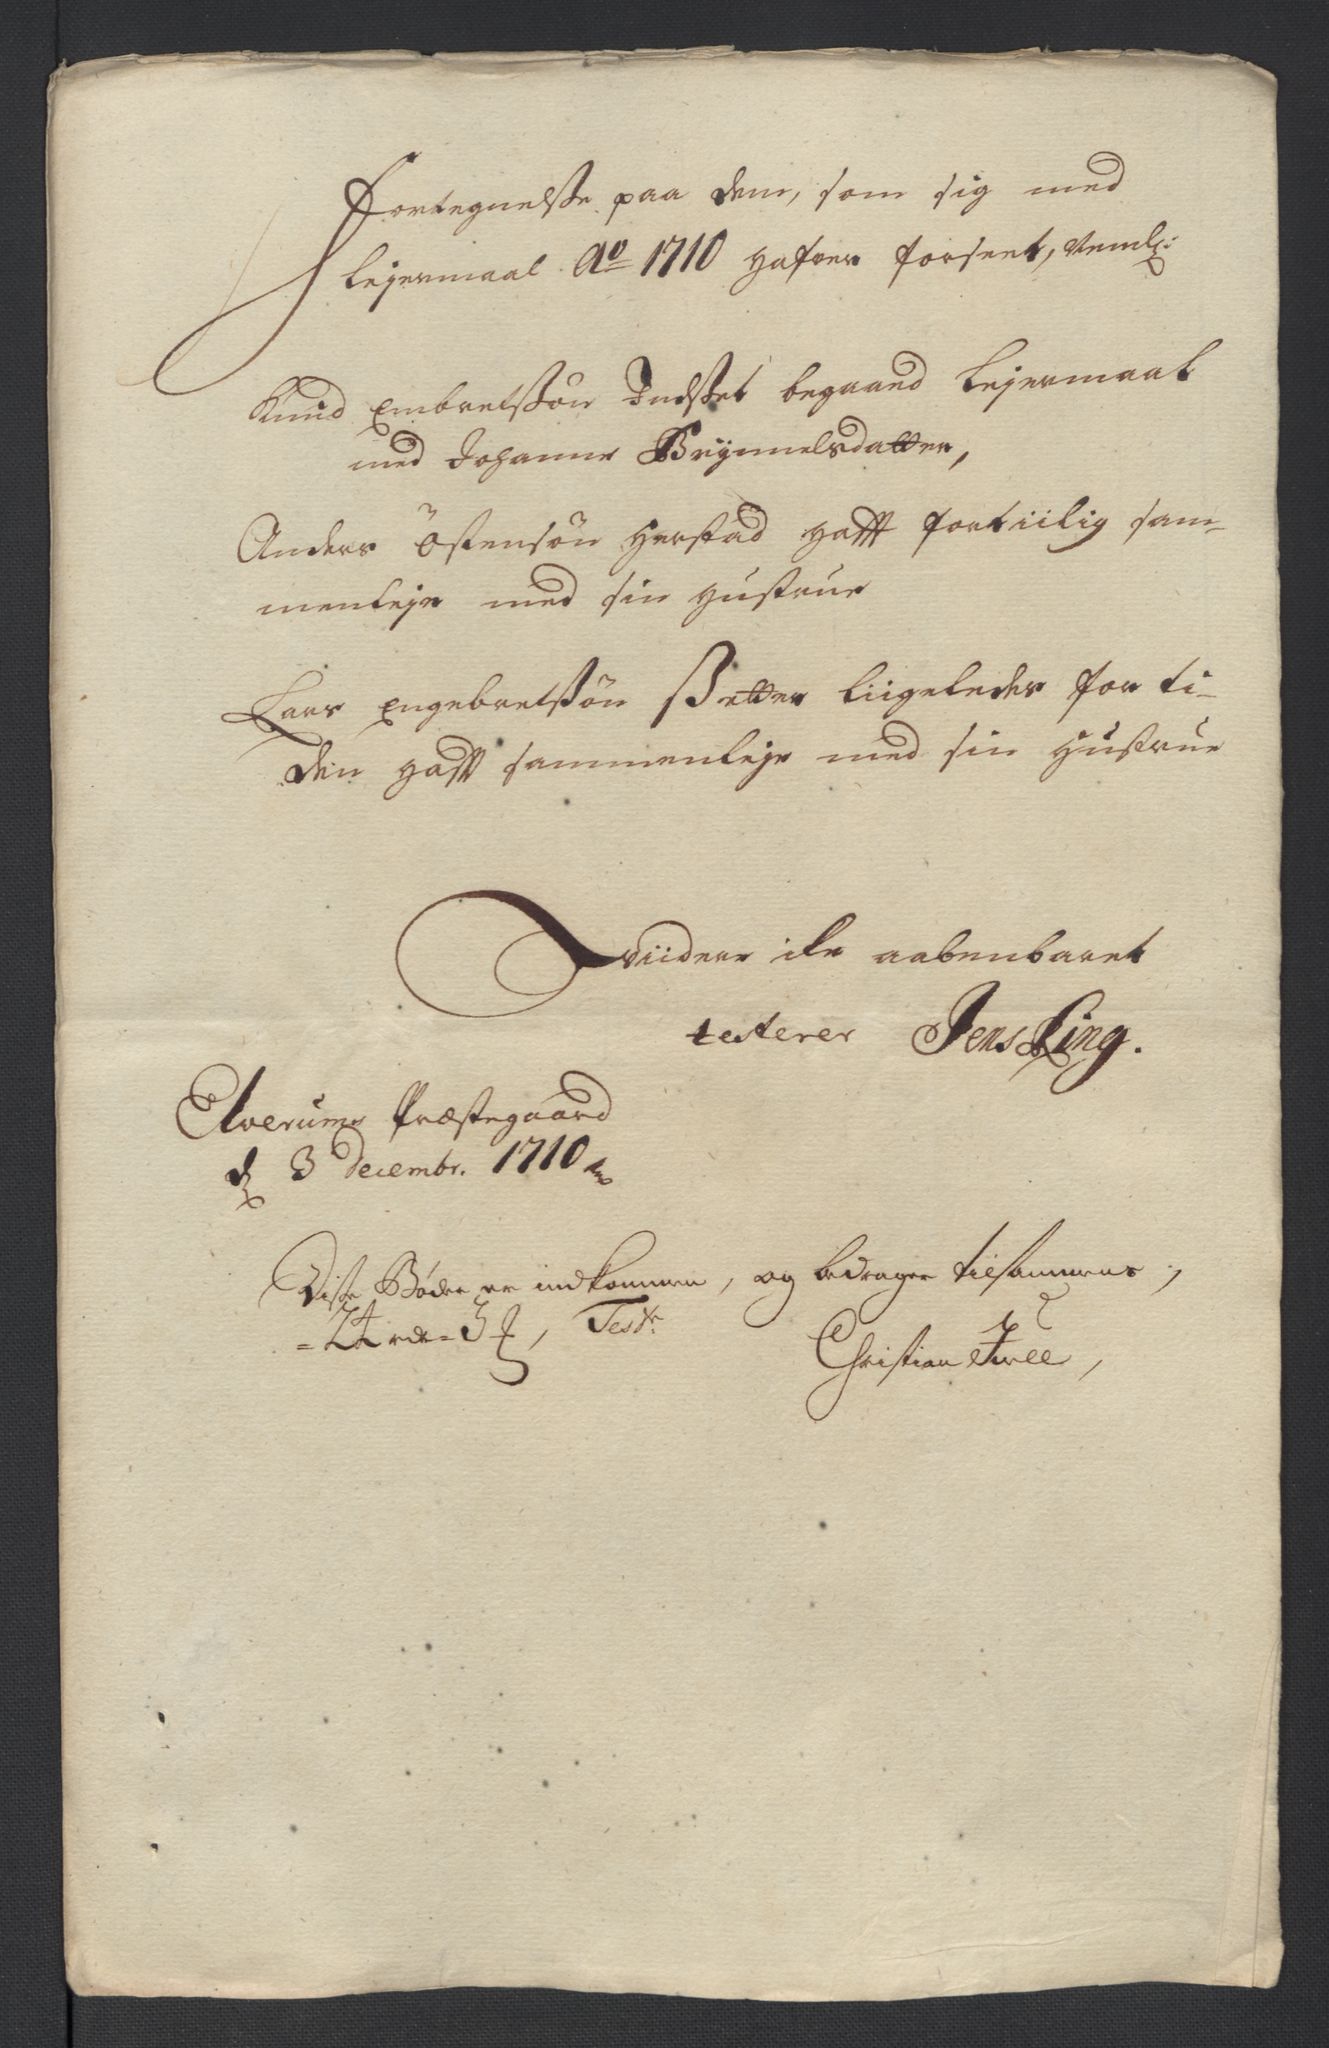 Fortegnelsse paa dem, som sig med
lejermaal Ao 1710 hafver forseet, Nemlig:
Knud Embretssøn Indset begaaed Lejermaal
med Johanne Brynnelsdatter,
Anders Östensøn Herstad hafft fortiilig sam-
menleje med sin hustrue
Lars Engebretssøn Sætter liigeledes for ti-
den hafft sammenleje med sin Hustrue
Viidere iche aabenbaret
testerer Jens Ling.
Elverums Præstegaard
d. 3 decembr. 1710
Disse Bøder er indkommen, og bedrager tilsammens,
=24 rdr= 3 , Test.
Christian